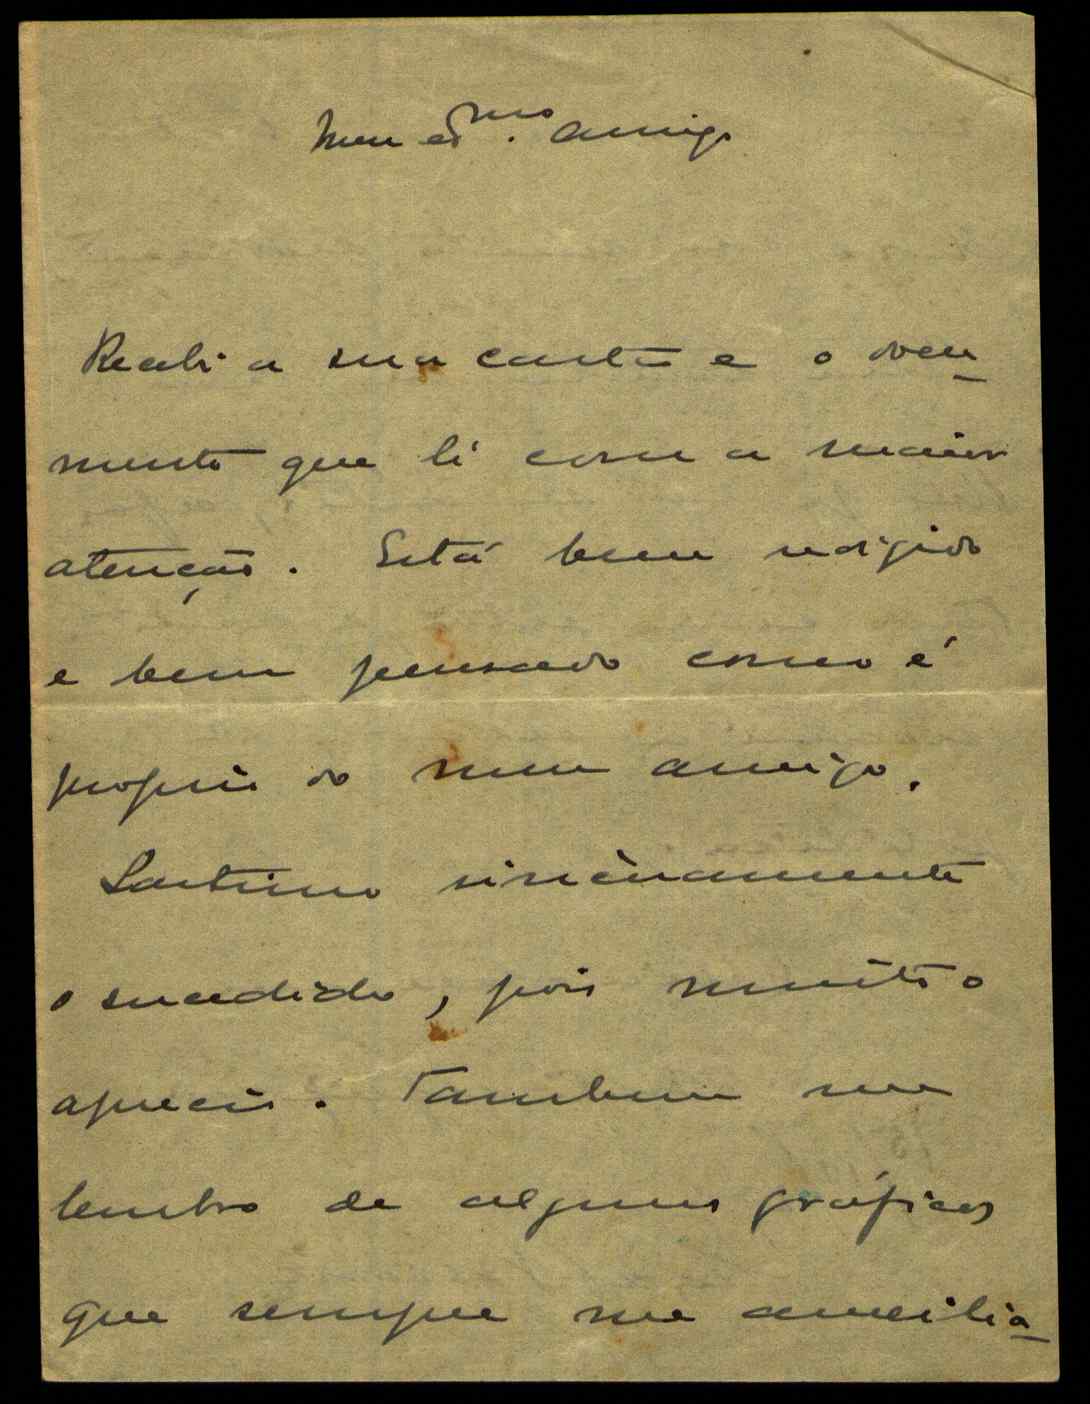 Meu Exmo. amigo
Recebi a sua carta e o docu-
mento que li com a maior
atenção. Está bem redigido
e bem pensado como é
proprio do meu amigo.
Lastimo sincèramente
o sucedido, pois muito o
aprecio. Tambem me
lembro de alguns gráficos
que sempre me auxilia-